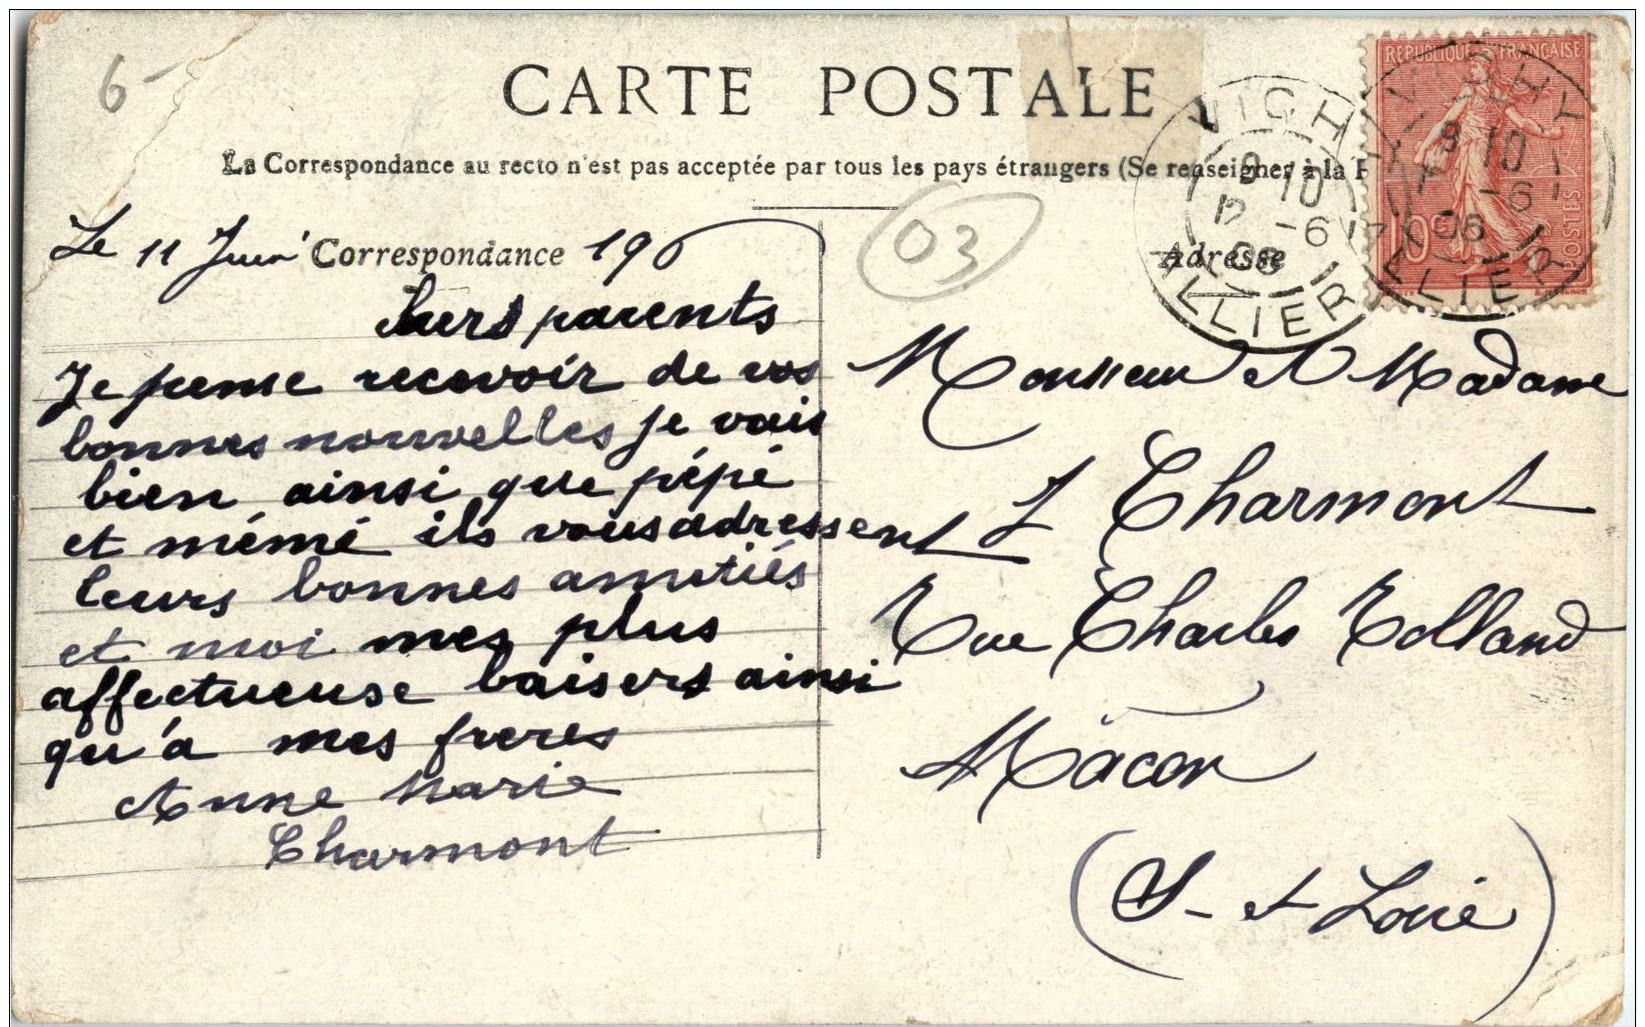 6-
CARTE POSTALE
La Correspondance au recto n'est pas acceptée par tous les pays étrangers (Se renseigner à la P
Le 11 Juin Correspondance 190
03
Adresse
VICHY
9 10
12 -6
06
ALLIER
VICHY
9 10
12 -6
06
ALLIER
REPUBLIQUE FRANÇAISE
10c
POSTES
parents
Je pense recevoir de vos
bonnes nouvelles je vais
bien ainsi que pépé
et mémé ils vous adressent
leurs bonnes amitiés
et moi mes plus
affectueuse baisers ainsi
qu'a mes freres
Anne Marie
Charmont
Monsieur et Madame
Charmont
Rue Charles Rolland
Mâcon
(S- et Loire)